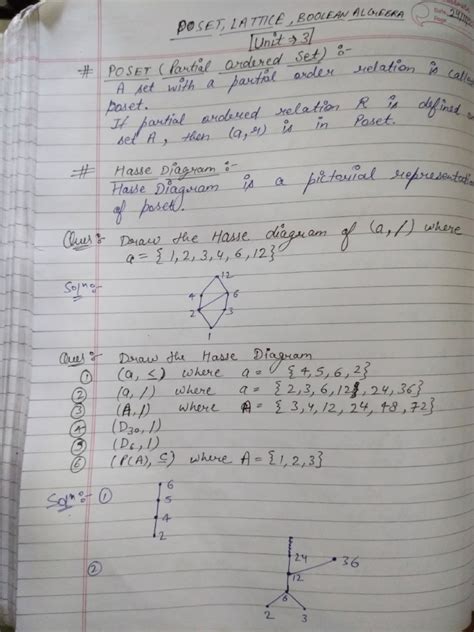 POSET, LATTICE, BOOLEAN ALGEBRA
[Unit → 3]
# POSET (Partial Ordered Set) :-
A set with a partial order relation is called
poset.
If partial ordered relation R is defined on
set A, then (a, r) is in Poset.
# Hasse Diagram :-
Hasse Diagram is a pictorial representation
of poset.
Ques :- Draw the Hasse diagram of (a, /) where
a = {1, 2, 3, 4, 6, 12}
Soln :-
12
4 6
2 3
1
Ques :- Draw the Hasse Diagram
① (a, ≤) where a = {4, 5, 6, 2}
② (a, /) where a = {2, 3, 6, 12, 24, 36}
③ (A, /) where A = {3, 4, 12, 24, 48, 72}
④ (D30, /)
⑤ (D6, /)
⑥ (P(A), ⊆) where A = {1, 2, 3}
Soln :- ①
6
5
4
2
②
24 36
12
6
2 3